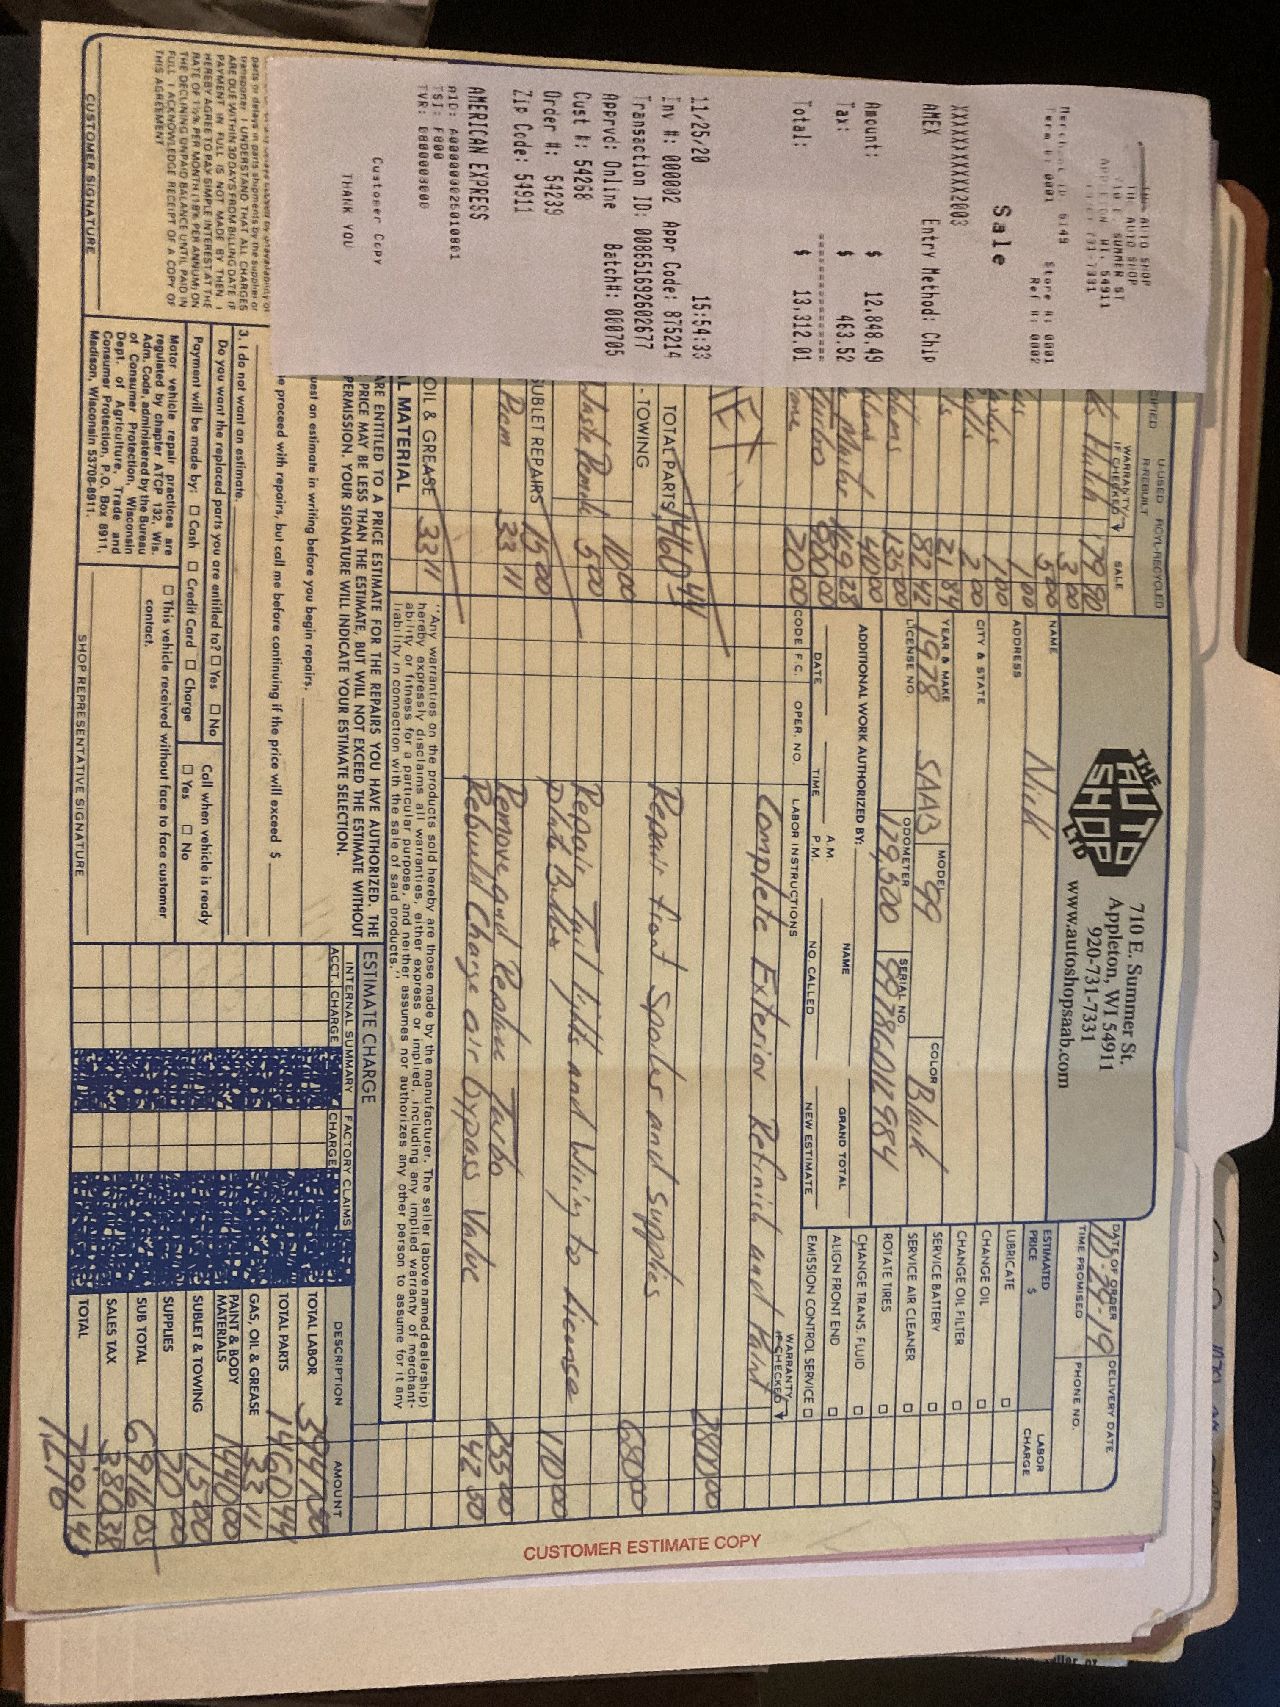 THE AUTO SHOP
THE AUTO SHOP
710 E. SUMMER ST
APPLETON, WI, 54911
Term #: 0001 Store #: 0001
Ref #: 0002
Sale
XXXXXXXXXXX2003
AMEX Entry Method: Chip
Amount: $ 12,848.49
Tax: $ 463.52
Total: $ 13,312.01
11/25/20 15:54:33
Inv #: 000002 Appr Code: 875214
Transaction ID: 008651692602677
Apprvd: Online Batch#: 000705
Cust #: 54268
Order #: 54239
Zip Code: 54911
AMERICAN EXPRESS
AID: A000000025010801
TSI: F800
Customer Copy
THANK YOU
THE AUTO SHOP LTD
710 E. Summer St.
Appleton, WI 54911
920-731-7331
www.autoshopsaab.com
DATE OF ORDER 10-29-19
DELIVERY DATE
TIME PROMISED
PHONE NO.
NAME Nick
ADDRESS
CITY & STATE
YEAR & MAKE 1978 SAAB
MODEL 99
COLOR Black
LICENSE NO.
ODOMETER 179,500
SERIAL NO.
ESTIMATED PRICE $
LABOR CHARGE
LUBRICATE
CHANGE OIL
CHANGE OIL FILTER
SERVICE BATTERY
SERVICE AIR CLEANER
ROTATE TIRES
CHANGE TRANS. FLUID
ALIGN FRONT END
EMISSION CONTROL SERVICE
ADDITIONAL WORK AUTHORIZED BY:
NAME
GRAND TOTAL
DATE TIME A.M. P.M. NO. CALLED NEW ESTIMATE
CODE F.C. OPER. NO. LABOR INSTRUCTIONS WARRANTY IF CHECKED
Complete Exterior Refinish and Paint
2800 00
Repair front Spoiler and supplies
680 00
Repair Tail lights and Wiring to license
plate Bulbs 170 00
Remove and Replace Turbo 255 00
Rebuild Charge air bypass Valve 42 50
U-USED RCYL-RECYCLED
R-REBUILT
WARRANTY IF CHECKED
SALE
179 90
3 00
5 00
1 00
1 00
2 00
21 84
82 42
135 00
40 00
169 28
Turbo 800 00
20 00
TOTAL PARTS 1460 44
- TOWING
10 00
5 00
SUBLET REPAIRS 15 00
33 11
OIL & GREASE 33 11
L MATERIAL
"Any warranties on the products sold hereby are those made by the manufacturer. The seller (above named dealership)
hereby expressly disclaims all warranties, either express or implied, including any implied warranty of merchant-
ability or fitness for a particular purpose, and neither assumes nor authorizes any other person to assume for it any
liability in connection with the sale of said products."
ARE ENTITLED TO A PRICE ESTIMATE FOR THE REPAIRS YOU HAVE AUTHORIZED. THE
PRICE MAY BE LESS THAN THE ESTIMATE, BUT WILL NOT EXCEED THE ESTIMATE WITHOUT
PERMISSION. YOUR SIGNATURE WILL INDICATE YOUR ESTIMATE SELECTION.
uest an estimate in writing before you begin repairs.
e proceed with repairs, but call me before continuing if the price will exceed $
3. I do not want an estimate.
Do you want the replaced parts you are entitled to? Yes No
Payment will be made by: Cash Credit Card Charge
Call when vehicle is ready
Yes No
Motor vehicle repair practices are
regulated by chapter ATCP 132, Wis.
Adm. Code, administered by the Bureau
of Consumer Protection, Wisconsin
Dept. of Agriculture, Trade and
Consumer Protection, P.O. Box 8911,
Madison, Wisconsin 53708-8911.
This vehicle received without face to face customer
contact.
SHOP REPRESENTATIVE SIGNATURE
parts or delays in parts shipments by the supplier or
transporter. I UNDERSTAND THAT ALL CHARGES
ARE DUE WITHIN 30 DAYS FROM BILLING DATE. IF
PAYMENT IN FULL IS NOT MADE BY THEN I
HEREBY AGREE TO PAY SIMPLE INTEREST AT THE
RATE OF 1½% PER MONTH (18% PER ANNUM) ON
THE DECLINING UNPAID BALANCE UNTIL PAID IN
FULL. I ACKNOWLEDGE RECEIPT OF A COPY OF
THIS AGREEMENT
CUSTOMER SIGNATURE
ESTIMATE CHARGE
INTERNAL SUMMARY FACTORY CLAIMS DESCRIPTION AMOUNT
ACCT. CHARGE CHARGE
TOTAL LABOR 3947 50
TOTAL PARTS 1460 44
GAS, OIL & GREASE 33 11
PAINT & BODY MATERIALS 1440 00
SUBLET & TOWING 15 00
SUPPLIES 20 00
SUB TOTAL 6916 05
SALES TAX 380 38
TOTAL 7,296 43
CUSTOMER ESTIMATE COPY